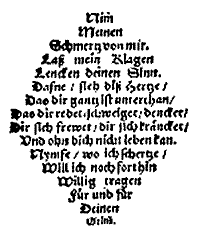 Nim
Meinen
Schmertz von mir.
Laß mein Klagen
Lencken deinen Sinn.
Dafne / sieh diß Hertze /
Das dir gantz ist unterthan /
Das dir redet / schweiget / dencket /
Dir sich frewet / dir sich kräncket /
Und ohn dich nicht leben kan.
Nymfe / wo ich schertze /
Will ich noch forthin
Willig tragen
Für und für
Deinen
Grim.